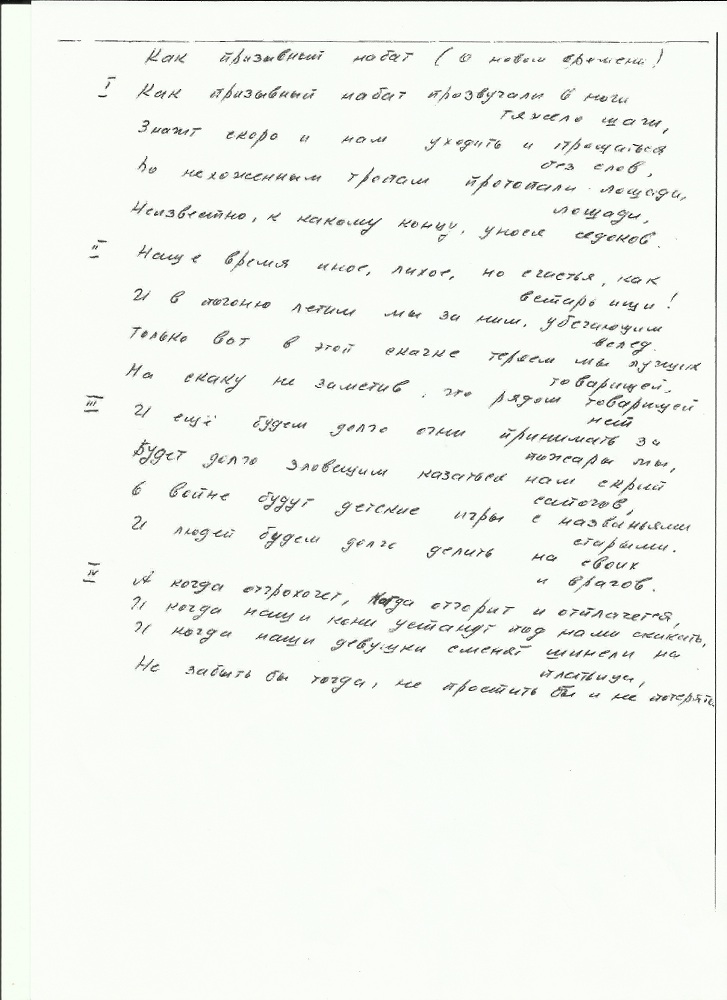 Как призывный набат (о новом времени)
I Как призывный набат прозвучали в ночи
тяжело шаги,
Значит скоро и нам уходить и прощаться
без слов,
По нехоженным тропам протопали лошади,
лошади,
Неизвестно, к какому концу, унося седоков.
II Наше время иное, лихое, но счастье, как
встарь ищи!
И в погоню летим мы за ним, убегающим
вслед.
Только вот в этой скачке теряем мы лучших
товарищей,
На скаку не заметив, что рядом товарищей
нет
III И ещё будем долго огни принимать за
пожары мы,
Будет долго зловещим казаться нам скрип
сапогов,
О войне будут детские игры с названьями
старыми.
И людей будем долго делить на своих
и врагов.
IV А когда отгрохочет, когда отгорит и отплачется,
И когда наши кони устанут под нами скакать,
И когда наши девушки сменят шинели на
платьица,
Не забыть бы тогда, не простить бы и не потерять.